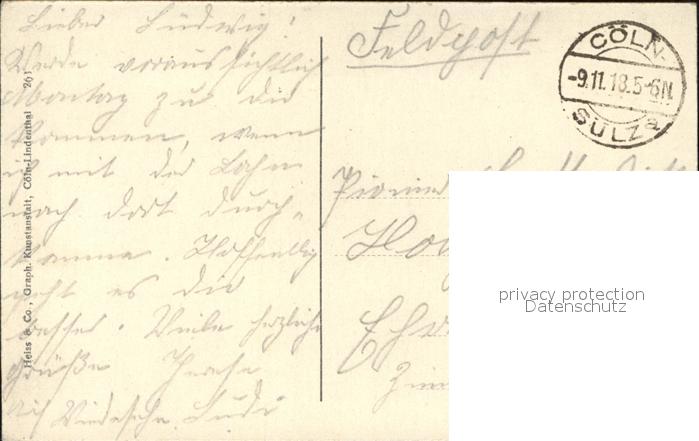 Lieber Ludwig!
Werde voraussichtlich
Montag zu dir
kommen, wenn
ich mit der Bahn
nach dort durch-
komme. Hoffentlich
geht es dir
besser. Viele herzliche
Grüße
Auf Wiedersehn
Feldpost
CÖLN-
-9.11.18.5-6N.
SÜLZ a
Pionier
Zim
Heiss & Co., Graph. Kunstanstalt, Cöln-Lindenthal 261
privacy protection
Datenschutz